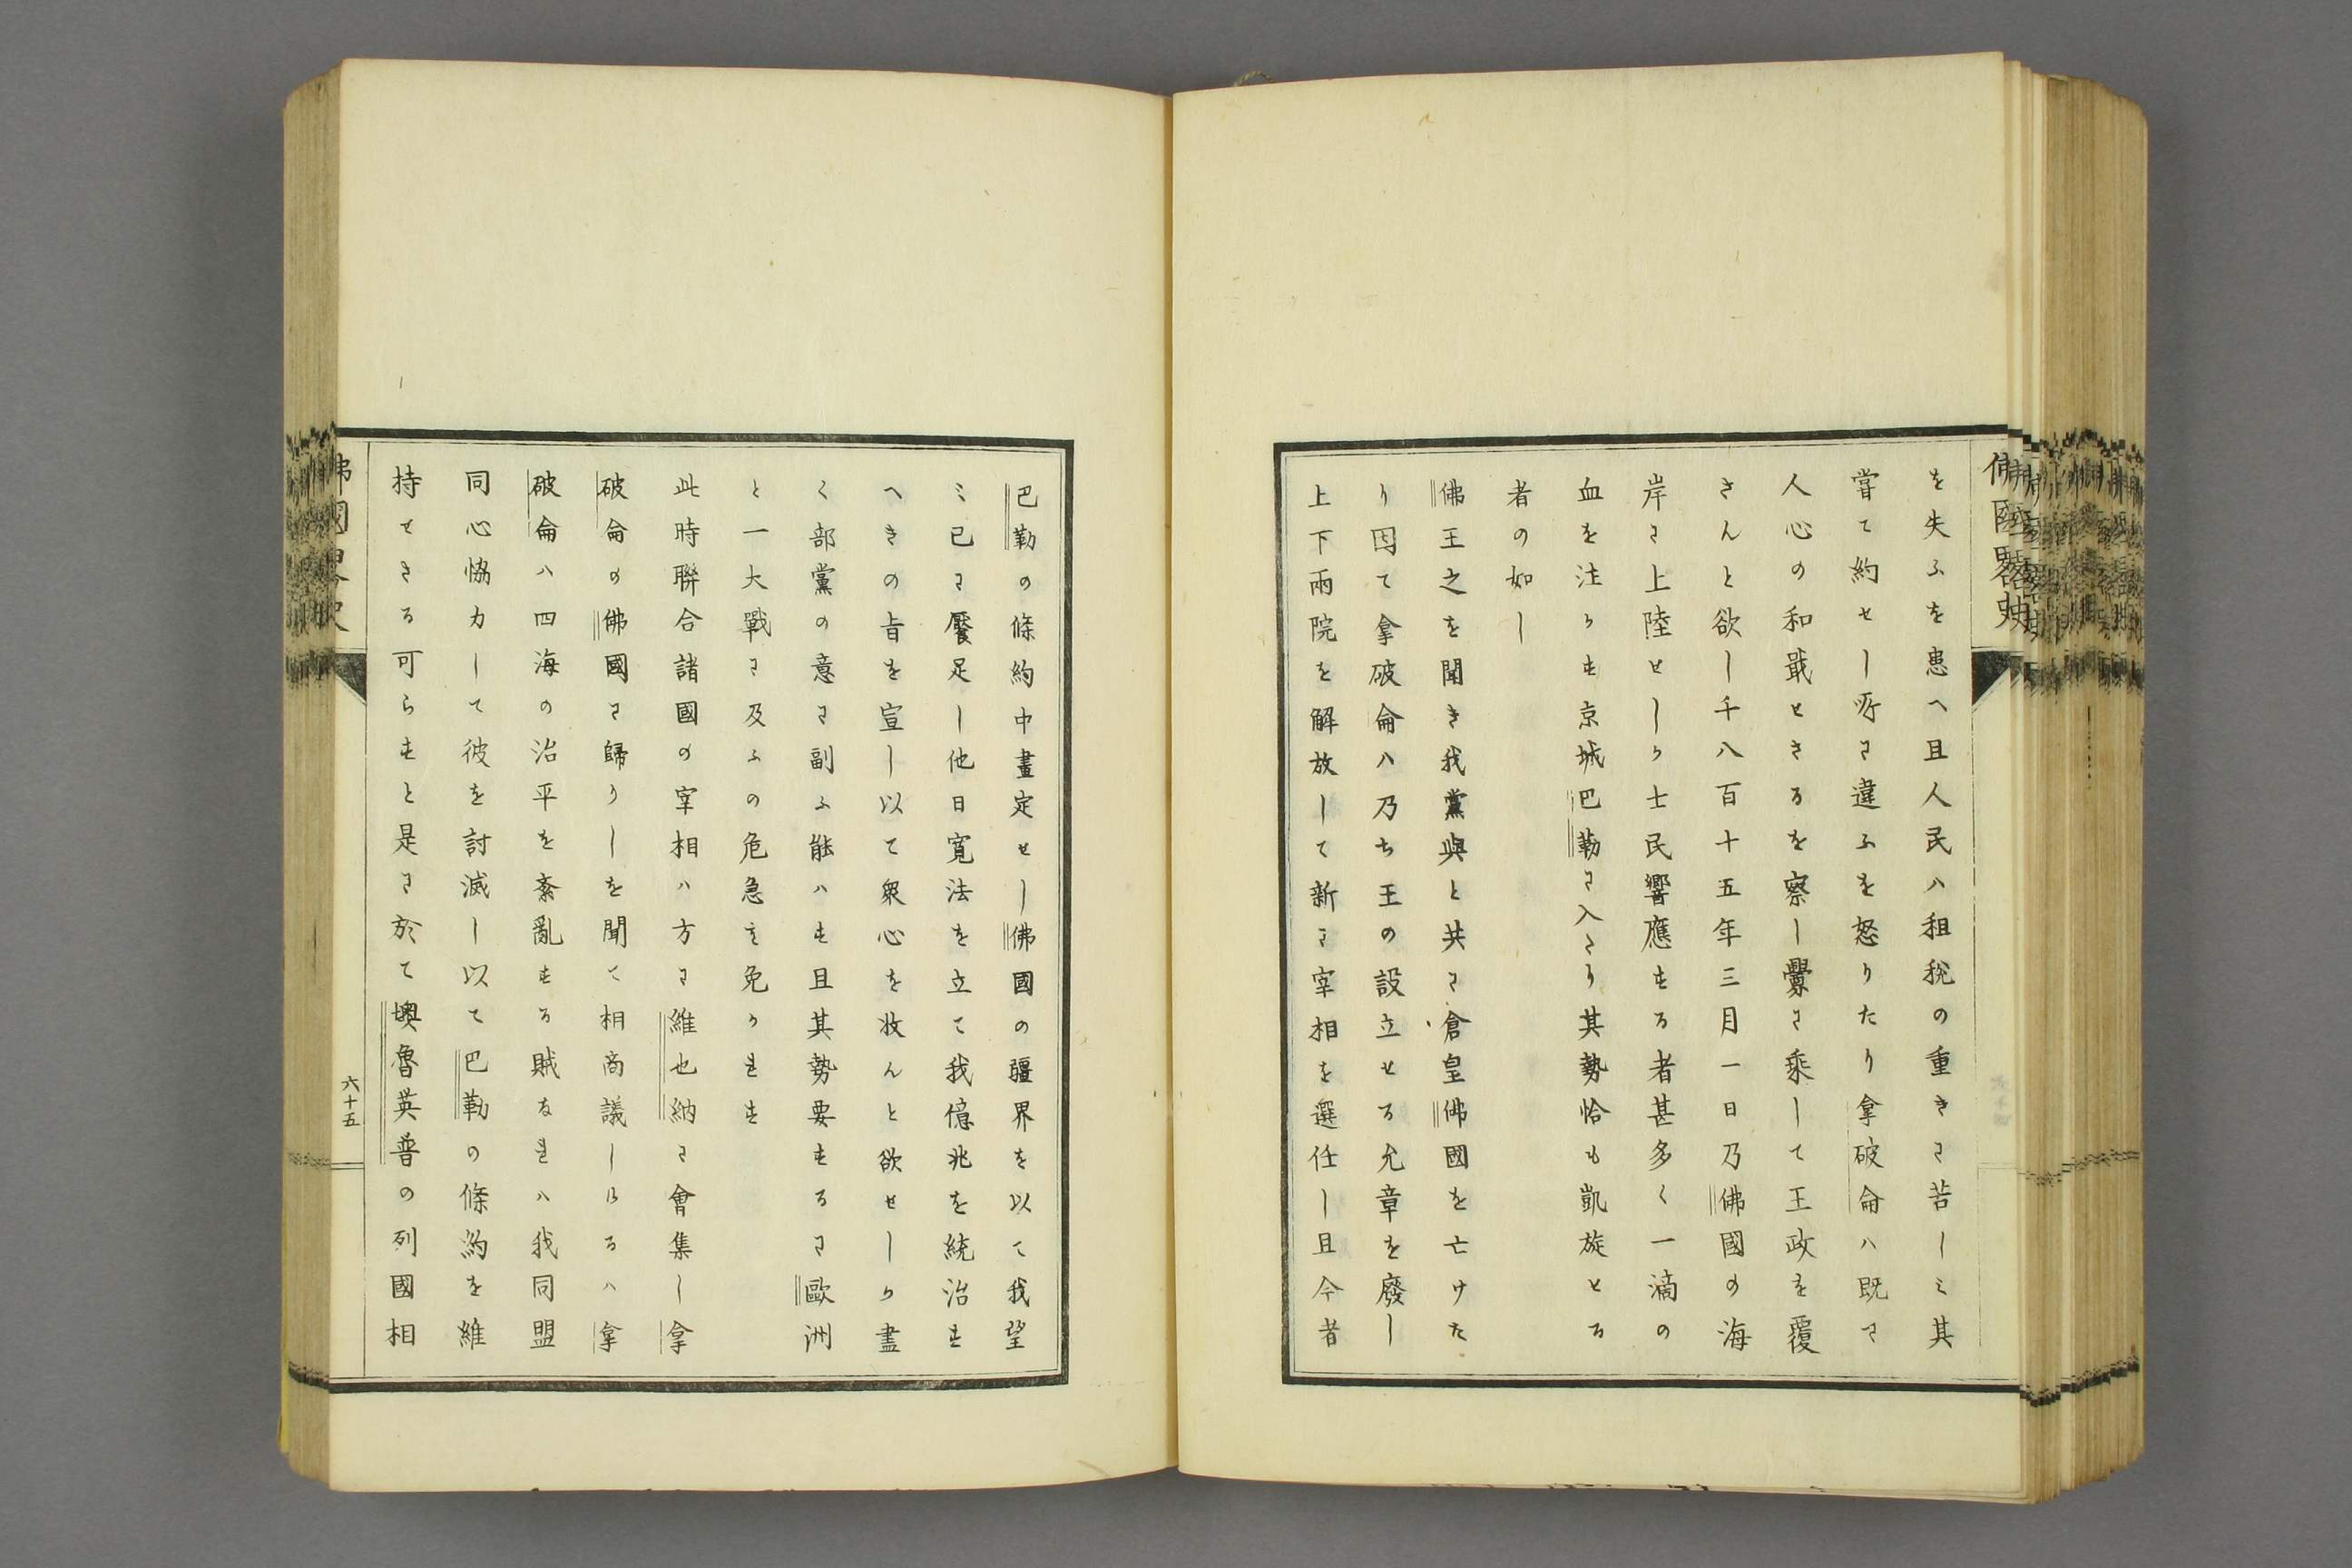 を失ふを患へ且人民ハ租税の重きに苦しミ其
嘗て約せし所に違ふを怒りたり拿破侖ハ既に
人心の和戢せさるを察し釁に乘して王政を覆
さんと欲し千八百十五年三月一日乃佛國の海
岸に上陸せしか士民響應する者甚多く一滴の
血を注かす京城巴勒に入さり其勢恰も凱旋せる
者の如し
佛王之を聞き我黨與と共に倉皇佛國を亡けた
り因て拿破侖ハ乃ち王の設立せる允章を廢し
上下兩院を解放して新に宰相を選任し且今者
巴勒の條約中畫定せし佛國の疆界を以て我望
ミ已に饜足し他日寛法を立て我億兆を統治す
へきの旨を宣し以て衆心を收んと欲せしか盡
く部黨の意に副ふ能ハす且其勢要するに歐洲
と一大戰に及ふの危急を免かれす
此時聯合諸國の宰相ハ方に維也納に會集し拿
破侖の佛國に歸りしを聞て相商議しけるハ拿
破侖ハ四海の治平を紊亂する賊なれハ我同盟
同心協力して彼を討滅し以て巴勒の條約を維
持せさる可らすと是に於て墺魯英普の列國相
佛國畧史
六十五